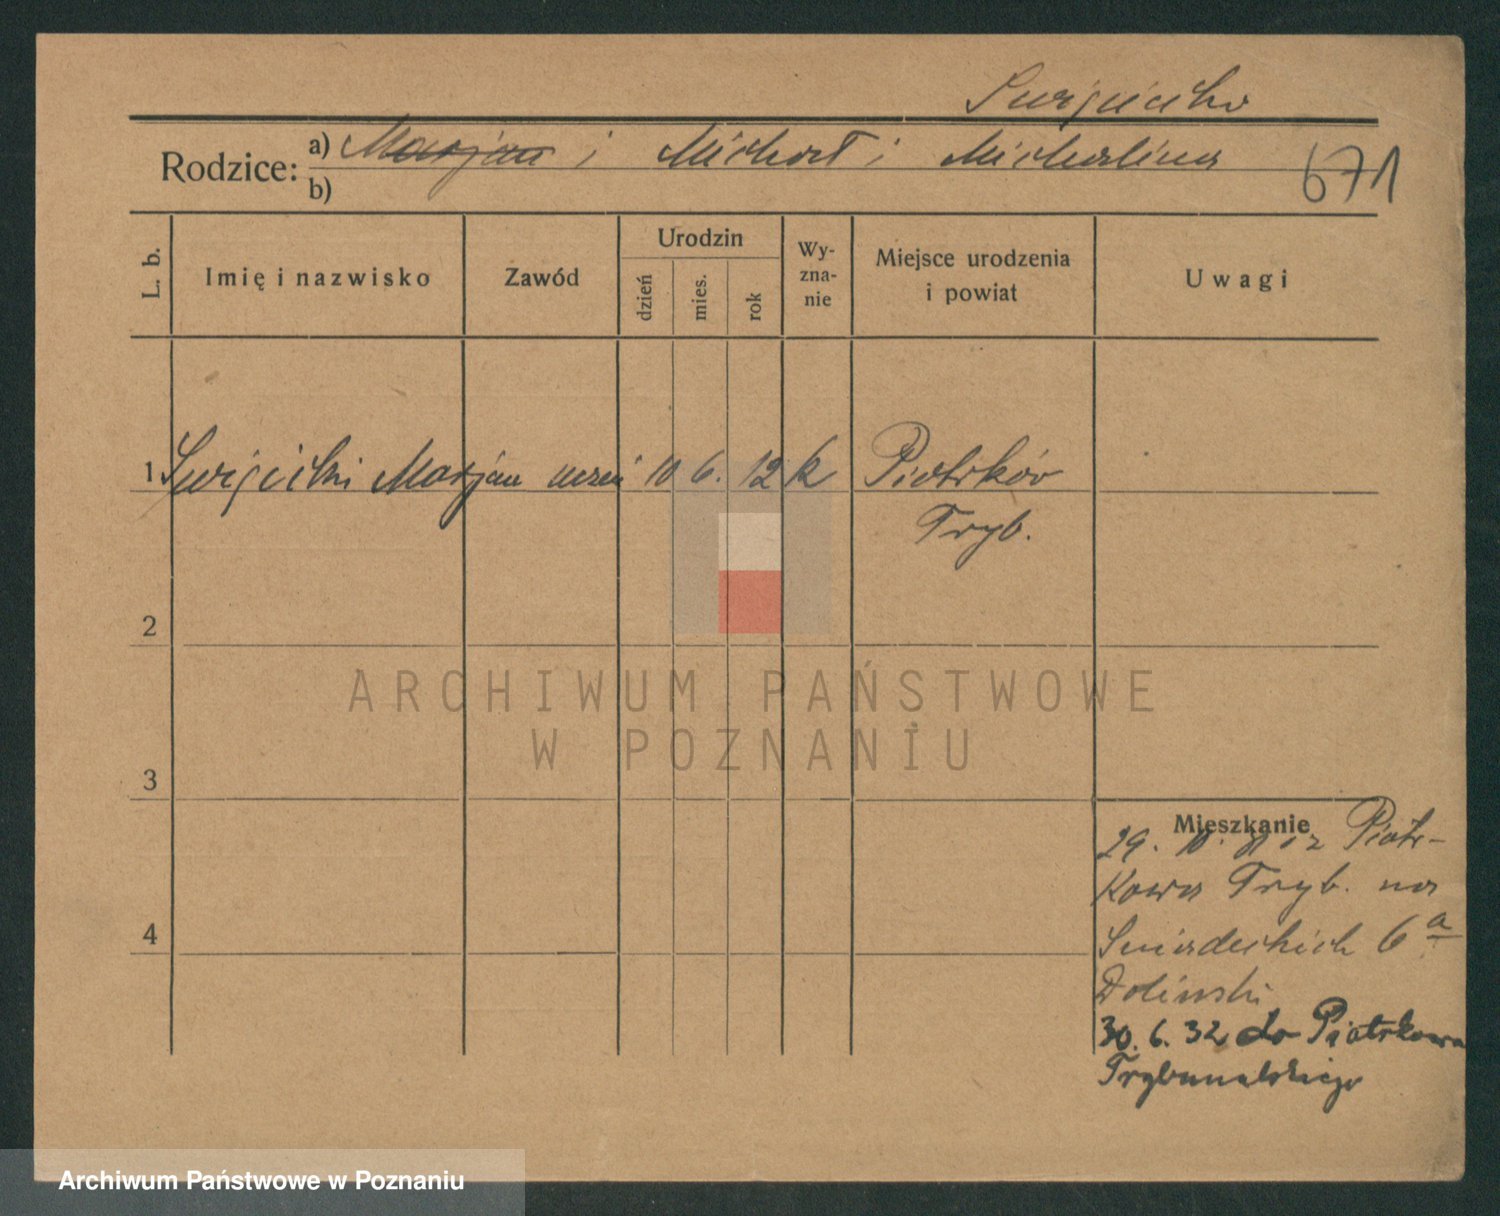 Święcicki
Rodzice: a) Marjan i Michał i Michalina
b)
671
L. b.
Imię i nazwisko
Zawód
Urodzin
dzień
mies.
rok
Wy-
zna-
nie
Miejsce urodzenia
i powiat
Uwagi
1 Święcicki Marjan uczeń 10 6. 12 k Piotrków
Tryb.
2
ARCHIWUM PAŃSTWOWE
W POZNANIU
3
Mieszkanie
29. 10. 31 z Piotr-
kowa Tryb. na
Śniadeckich 6a
Doliński
4
30. 6. 32 do Piotrkowa
Trybunalskiego
Archiwum Państwowe w Poznaniu